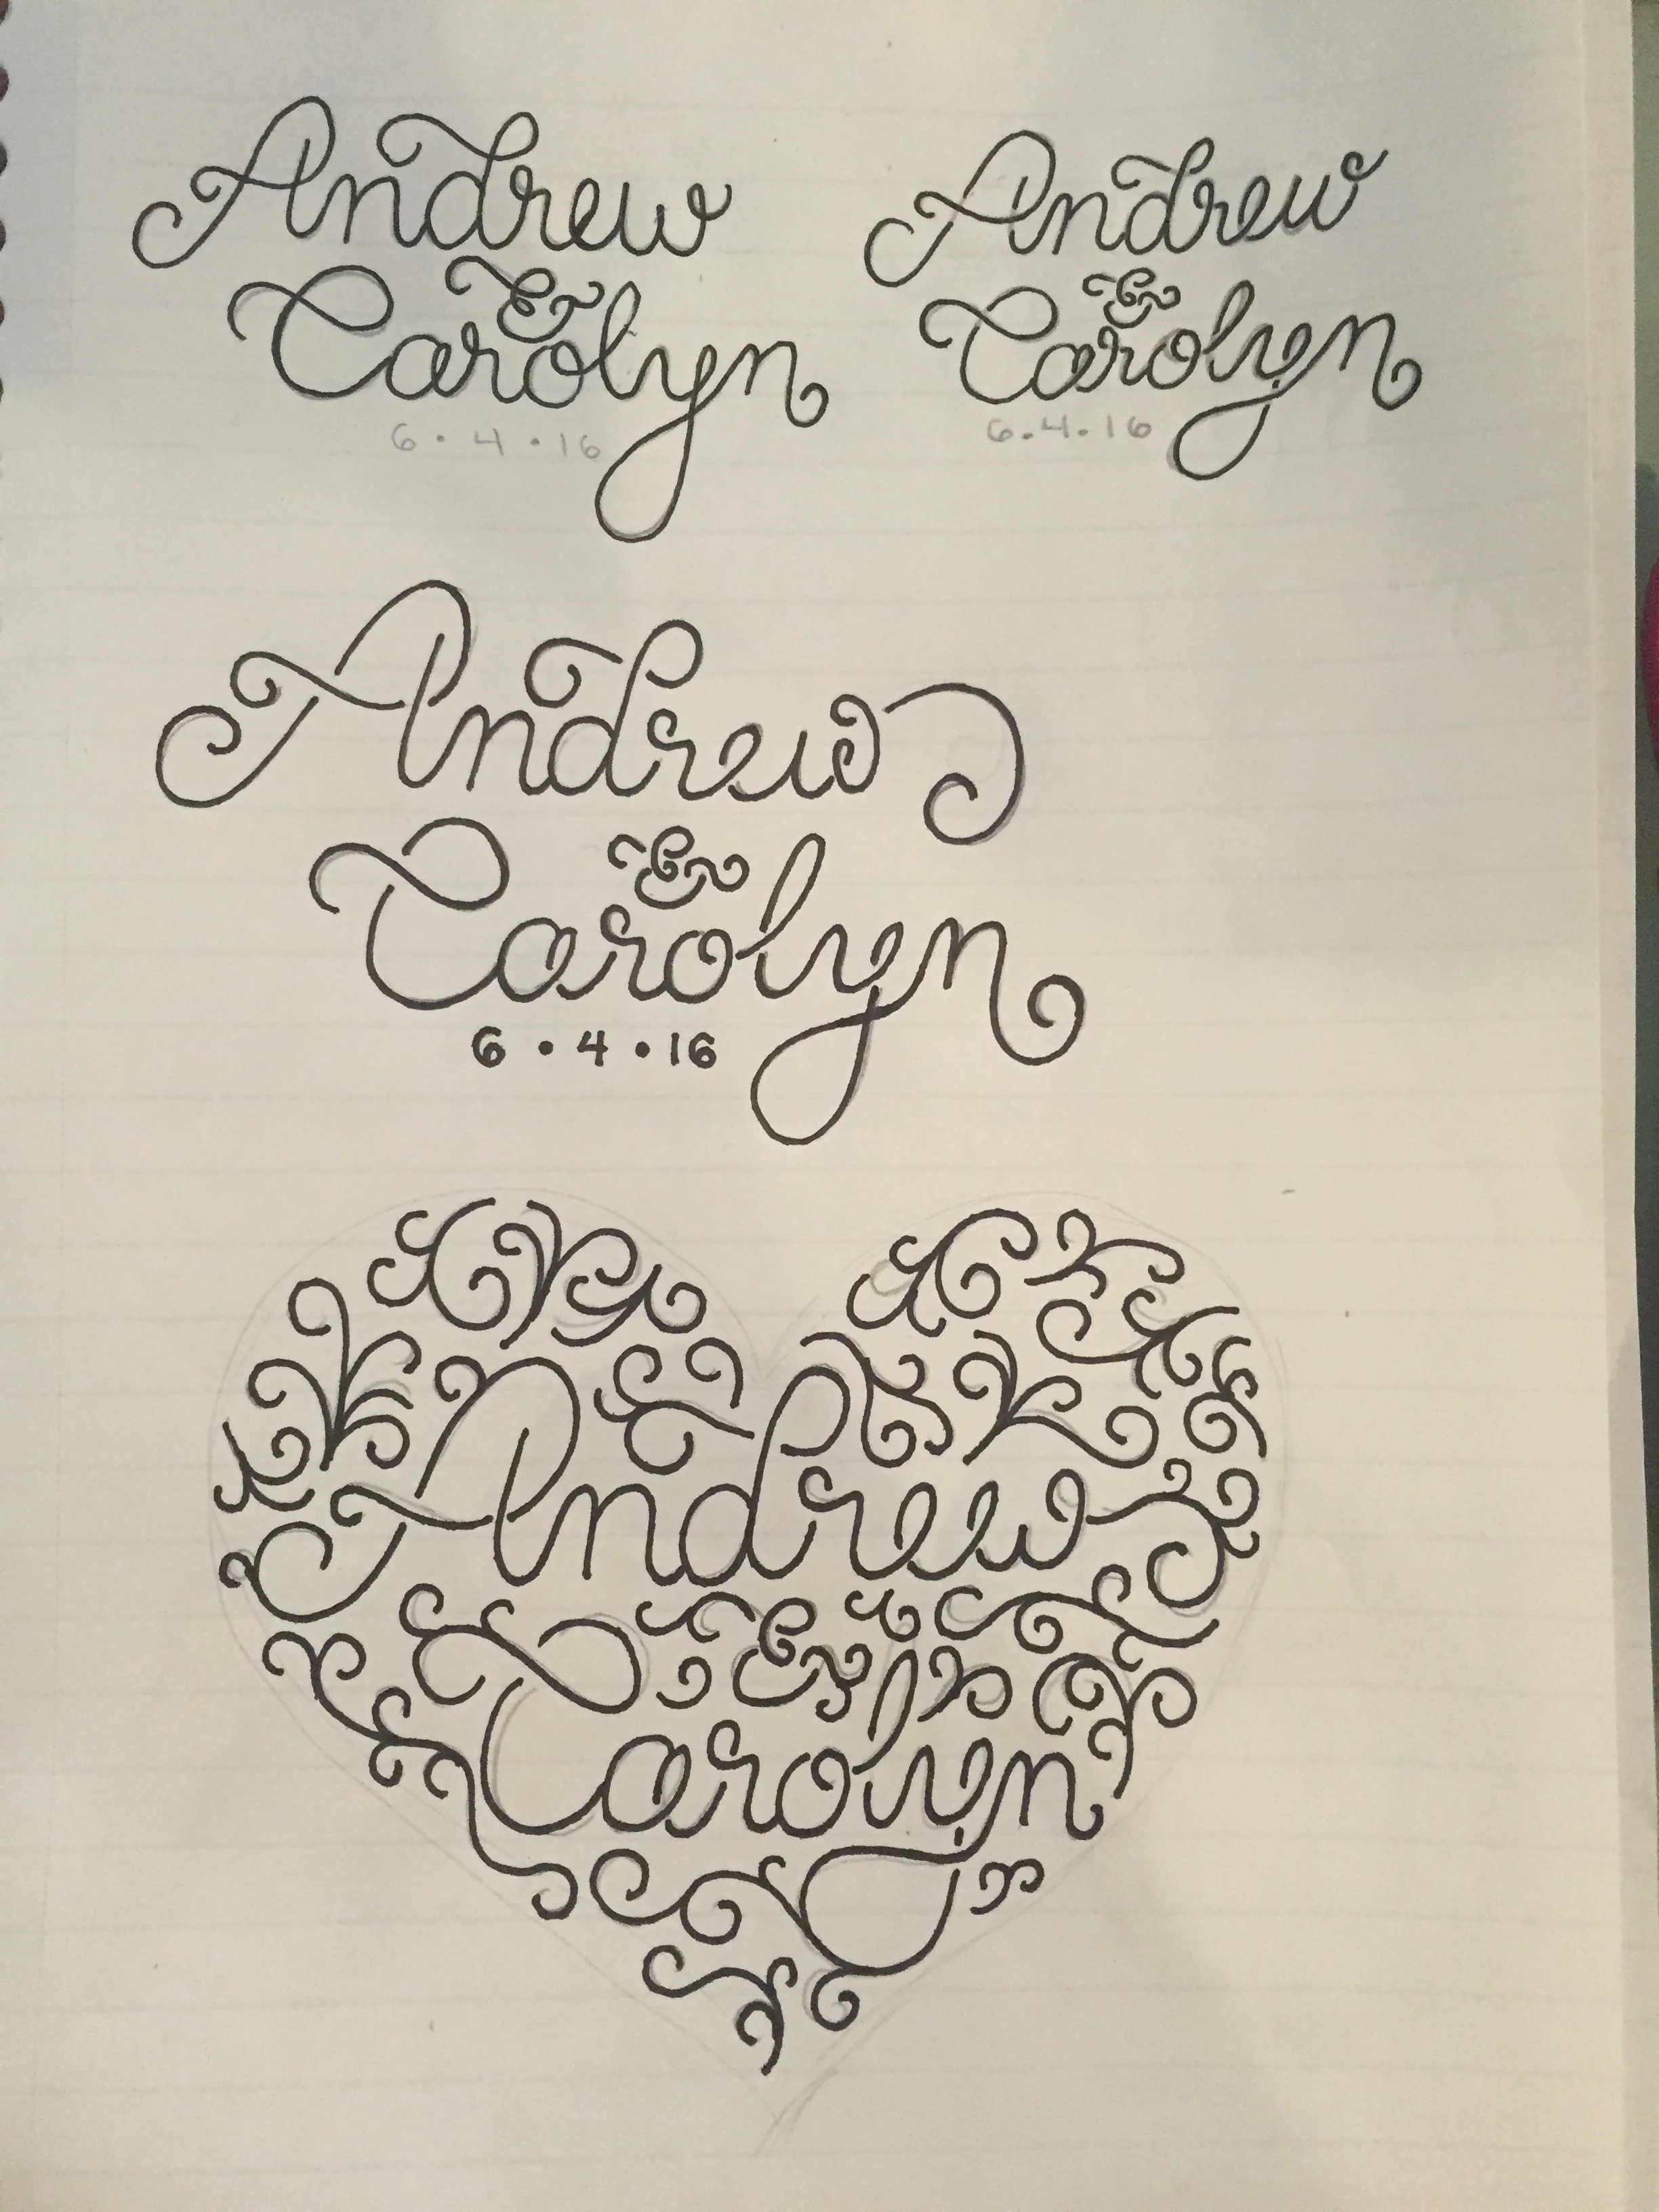 Andrew
&
Carolyn
6 • 4 • 16
Andrew
&
Carolyn
6.4.16
Andrew
&
Carolyn
6 • 4 • 16
Andrew
&
Carolyn